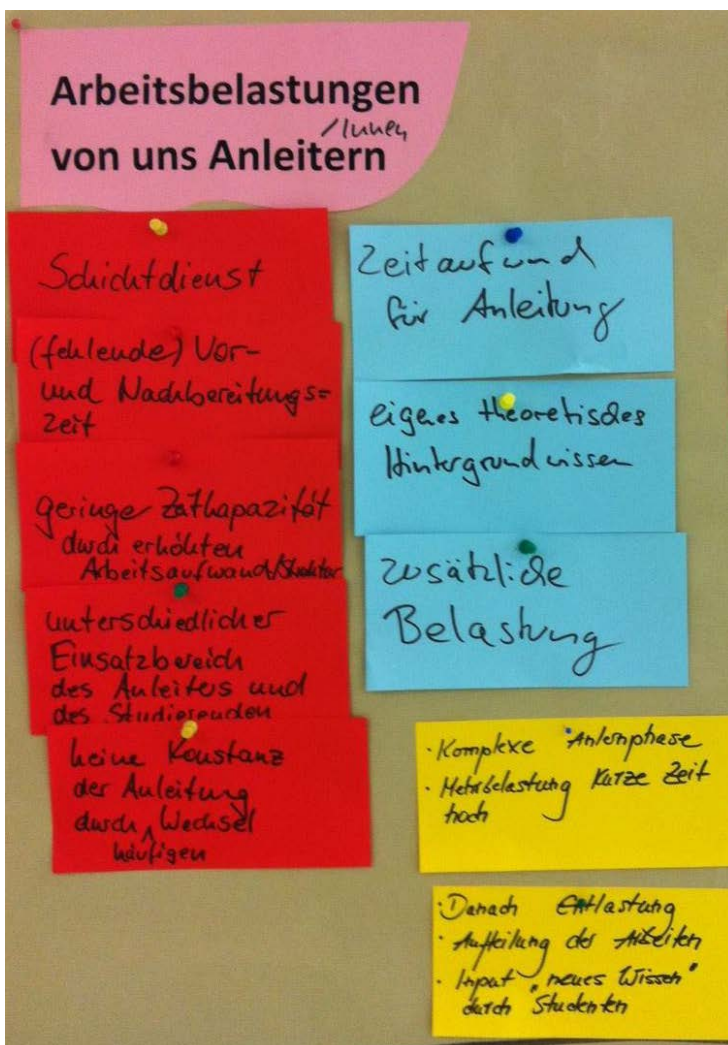 Arbeitsbelastungen
/Innen
von uns Anleitern
Schichtdienst
(fehlende) Vor-
und Nachbereitungs=
zeit
geringe Zeitkapazität
durch erhöhten
Arbeitsaufwand/Struktur
unterschiedlicher
Einsatzbereich
des Anleiters und
des Studierenden
keine Konstanz
der Anleitung
durch Wechsel
häufigen
Zeitaufwand
für Anleitung
eigenes theoretisches
Hintergrundwissen
zusätzliche
Belastung
· Komplexe Anlernphase
· Mehrbelastung kurze Zeit
hoch
· Danach Entlastung
· Aufteilung der Arbeiten
· Input „neues Wissen"
durch Studenten